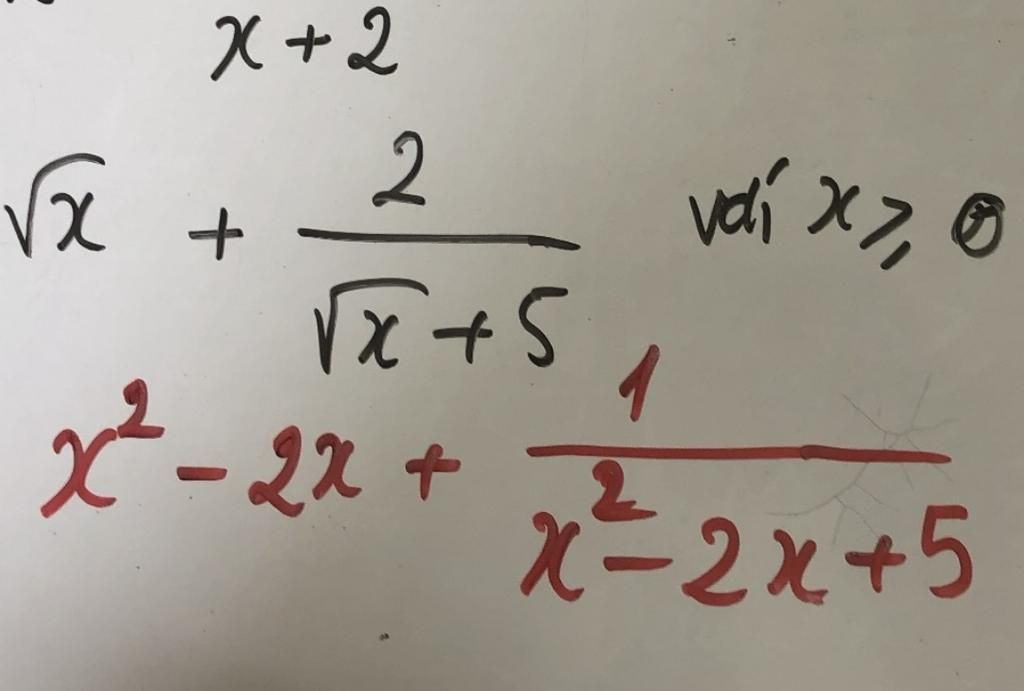 x + 2
√x + 2/(√x + 5) với x ⩾ 0
x² - 2x + 1/(x² - 2x + 5)